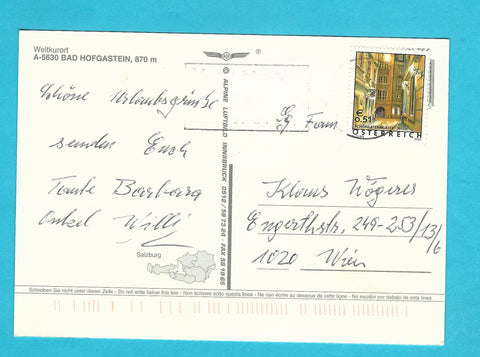 Weltkurort
A-5630 BAD HOFGASTEIN, 870 m
®
Schöne Urlaubsgrüße
senden Euch
Tante Barbara
Onkel Willi
Salzburg
© ALPINE LUFTBILD INNSBRUCK 0512/58 73 24 - FAX 58 19 65
€ 0.51
ÖSTERREICH
Fam.
Klaus Wögerer
Engerthstr. 249-253/13/6
1020 Wien
Schreiben Sie bitte nicht unter dieser Zeile - Do not write below this line - Non scrivere sotto questa linea - Ne rien écrire au dessous de cette ligne - No escribir por debajo de esta linea